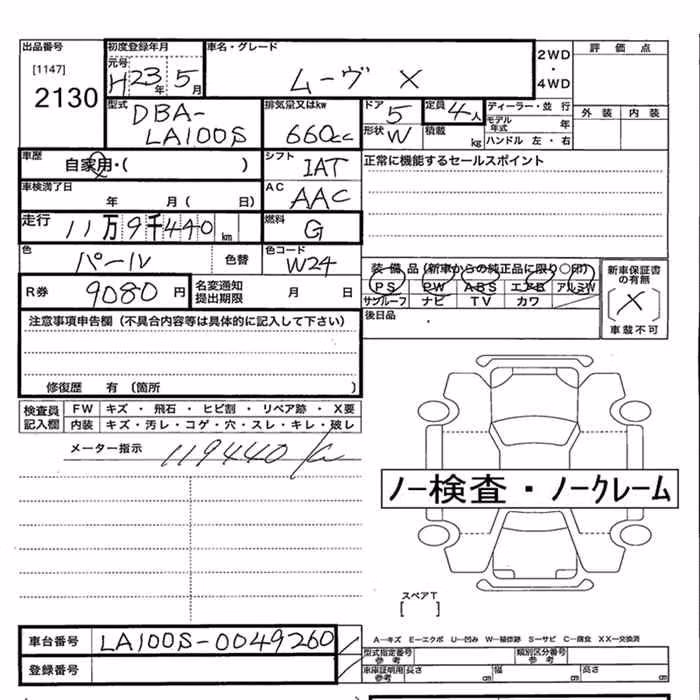 出品番号 初度登録年月 車名・グレード 2WD・4WD 評価点
[1147] 元号 H23年5月 ムーヴ X
2130
型式 DBA-LA100S 排気量又はkw 660cc ドア 5 定員 4人 ディーラー・並行 外装 内装
形状 W 積載 kg モデル年式 年
ハンドル 左・右
車歴 自家用・( ) シフト IAT 正常に機能するセールスポイント
車検満了日 年 月( 日) AC AAC
走行 11万9千440km 燃料 G
色 パール 色替 色コード W24 装備品(新車からの純正品に限り○印) 新車保証書の有無
R券 9080円 名変通知提出期限 月 日 PS PW ABS エアB アルミW (X)
サンルーフ ナビ TV カワ 車載不可
注意事項申告欄(不具合内容等は具体的に記入して下さい) 後日品
修復歴 有(箇所 )
検査員記入欄 FW キズ・飛石・ヒビ割・リペア跡・X要
内装 キズ・汚レ・コゲ・穴・スレ・キレ・破レ
メーター指示 119440
ノー検査・ノークレーム
スペアT
[ ]
車台番号 LA100S-0049260 A-キズ E-エクボ U-凹み W-補修跡 S-サビ C-腐食 XX-交換済
登録番号 型式指定番号 参考 類別区分番号 参考
車庫証明用 参考 長さ cm 幅 cm 高さ cm